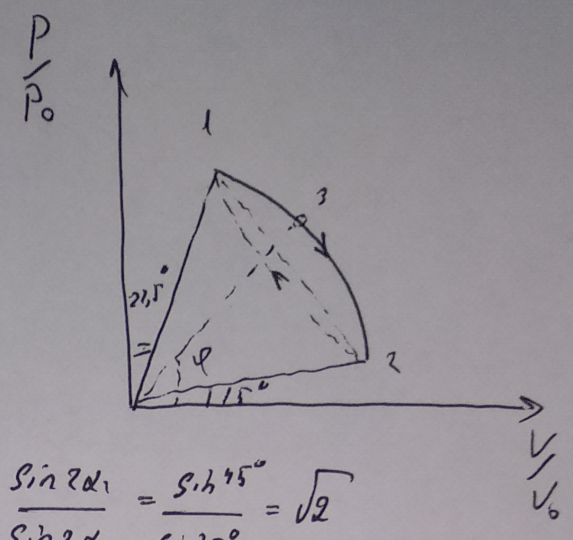 P/P₀
1
3
21,5°
φ
2
15°
V/V₀
sin 2α₁ / sin 2α = sin 45° / sin 30° = √2